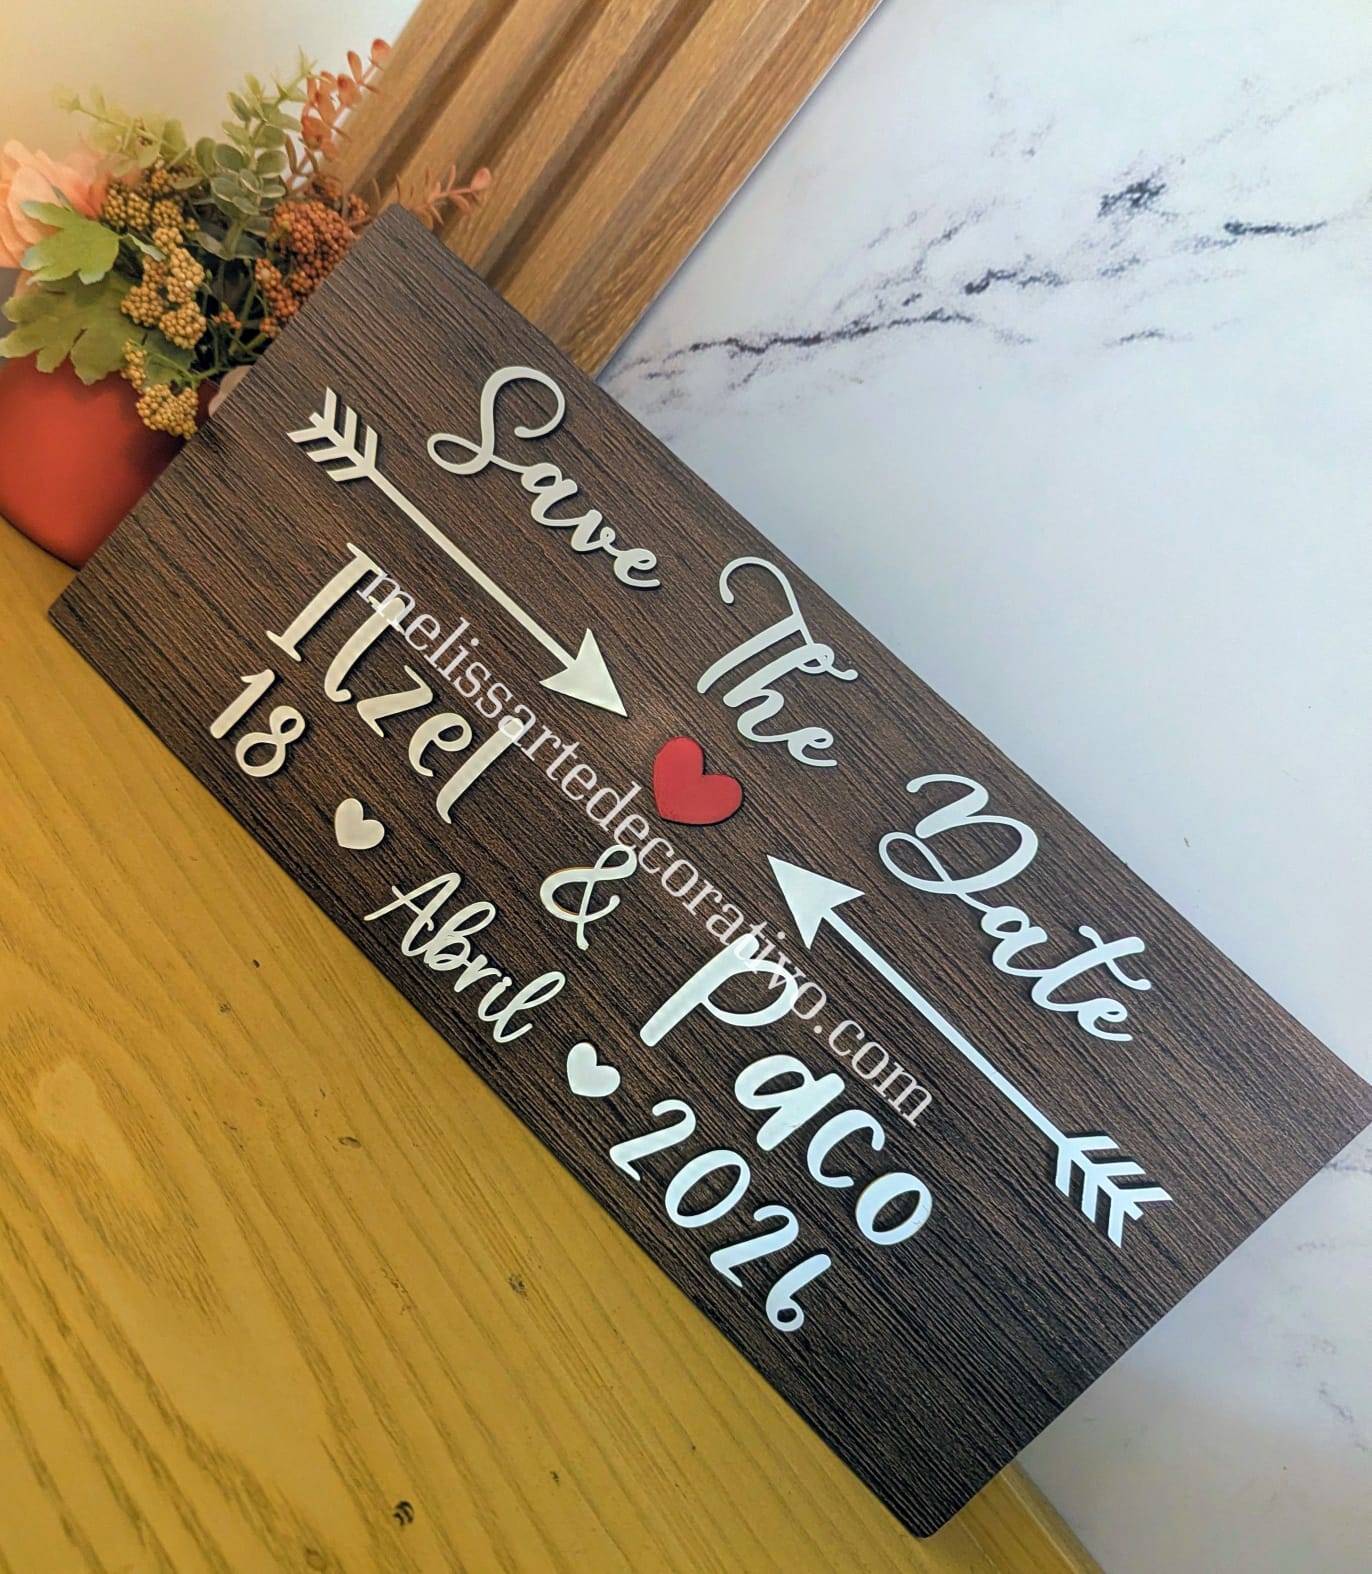 Save The Date
Itzel & Paco
18 Abril 2026
melissartedecorativo.com